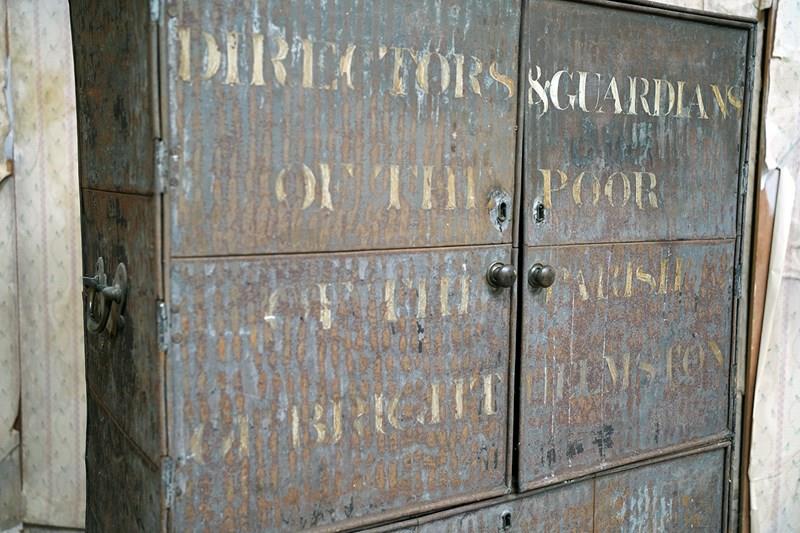 DIRECTORS &GUARDIANS
OF THE POOR
OF THE PARISH
OF BRIGHT HELMSTON